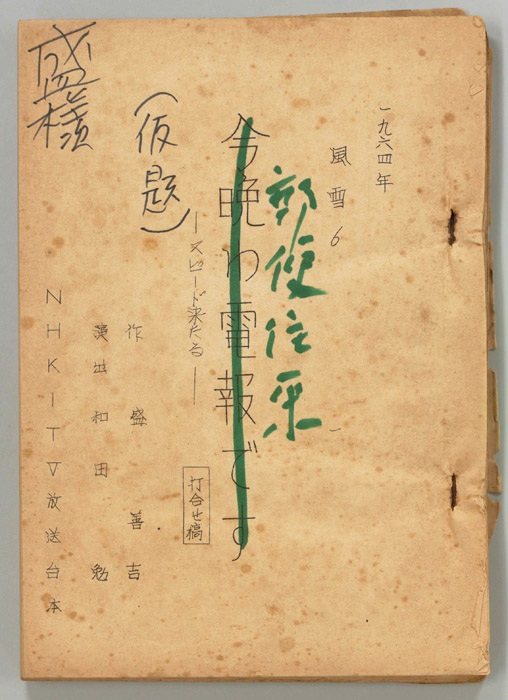 一九六四年
風雪6
郵便往来
今晩わ電報です
―スピード来たる―
打合せ稿
(仮題)
作 盛善吉
演出 和田勉
NHKITV放送台本
盛様